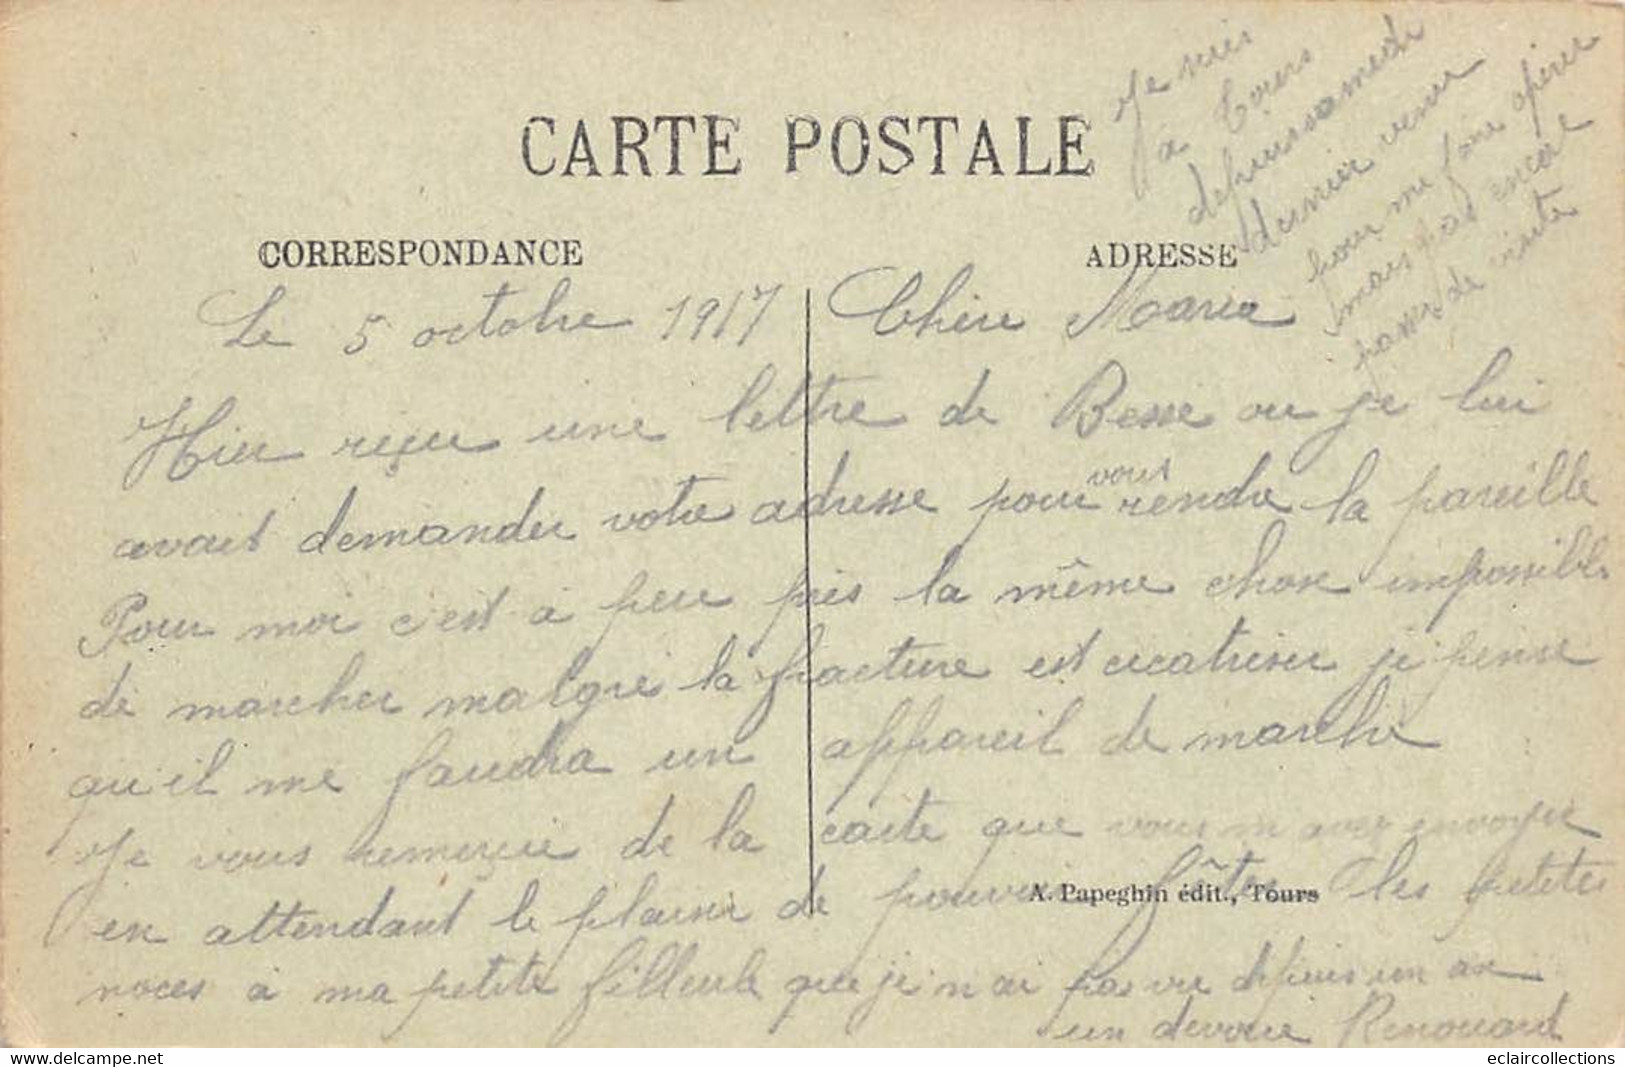 CARTE POSTALE
CORRESPONDANCE
ADRESSE
Je suis
à Tours
depuis samedi
dernier venu
pour me faire opérer
mais pas encore
passer de visite
Le 5 octobre 1917
Chère Maria
Hier reçu une lettre de Besse ou je lui
avait demander votre adresse pour vous rendre la pareille
Pour moi c'est à peu près la même chose impossible
de marcher malgré la fracture est cicatriser je pense
qu'il me faudra un appareil de marche
Je vous remercie de la carte que vous m'avez envoyée
en attendant le plaisir de pouvoir fêter les petites
A. Papeghin édit., Tours
noces a ma petite filleule que je n'ai pas vu depuis un an
un devoué Renouard
eclaircollections